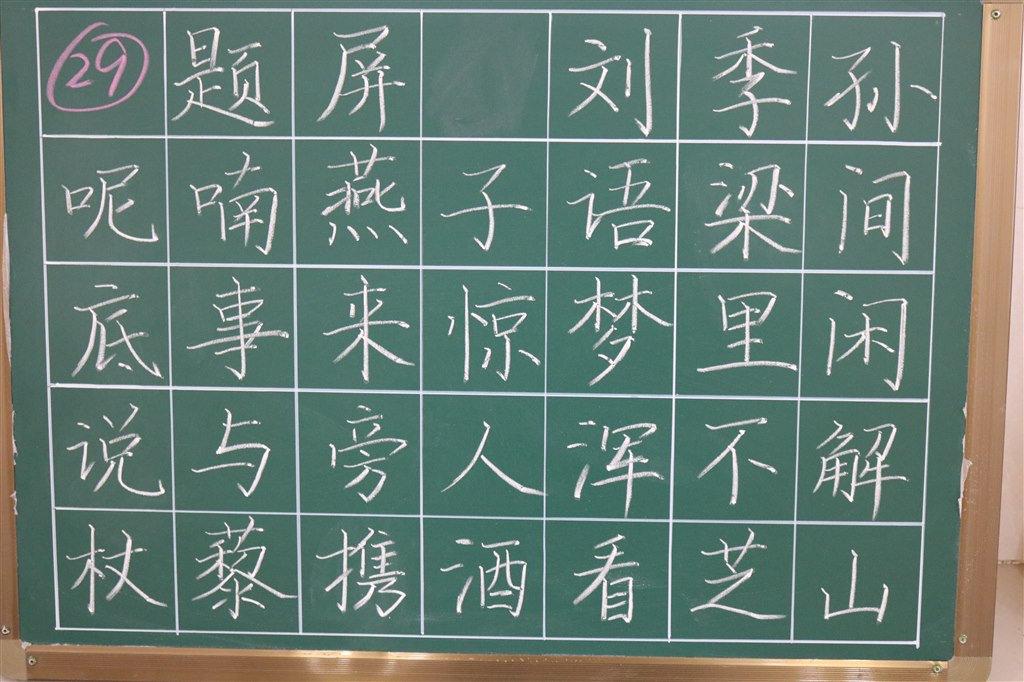 29 题屏 刘季孙
呢喃燕子语梁间
底事来惊梦里闲
说与旁人浑不解
杖藜携酒看芝山